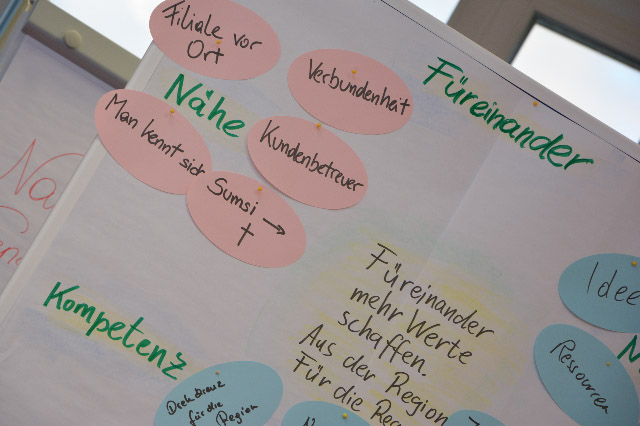 Filiale vor
Ort
Verbundenheit
Füreinander
Nähe
Man kennt sich
Kundenbetreuer
Sumsi →
†
Füreinander
mehr Werte
schaffen.
Aus der Region
Für die Reg
Kompetenz
für die
Region
Idee
Ressourcen